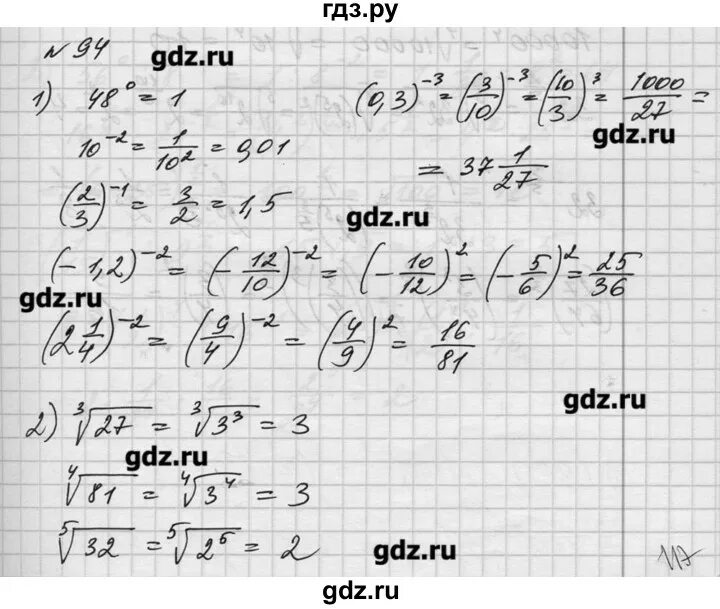 гдз.ру
N 94
gdz.ru
1) 48° = 1
(0,3)^-3 = (3/10)^-3 = (10/3)^3 = 1000/27 =
gdz.ru
10^-2 = 1/10^2 = 0,01
= 37 1/27
(2/3)^-1 = 3/2 = 1,5
gdz.ru
(-1,2)^-2 = (-12/10)^-2 = (-10/12)^2 = (-5/6)^2 = 25/36
gdz.ru
(2 1/4)^-2 = (9/4)^-2 = (4/9)^2 = 16/81
gdz.ru
2) ∛27 = ∛3^3 = 3
gdz.ru
∜81 = ∜3^4 = 3
⁵√32 = ⁵√2^5 = 2
gdz.ru
117
gdz.ru